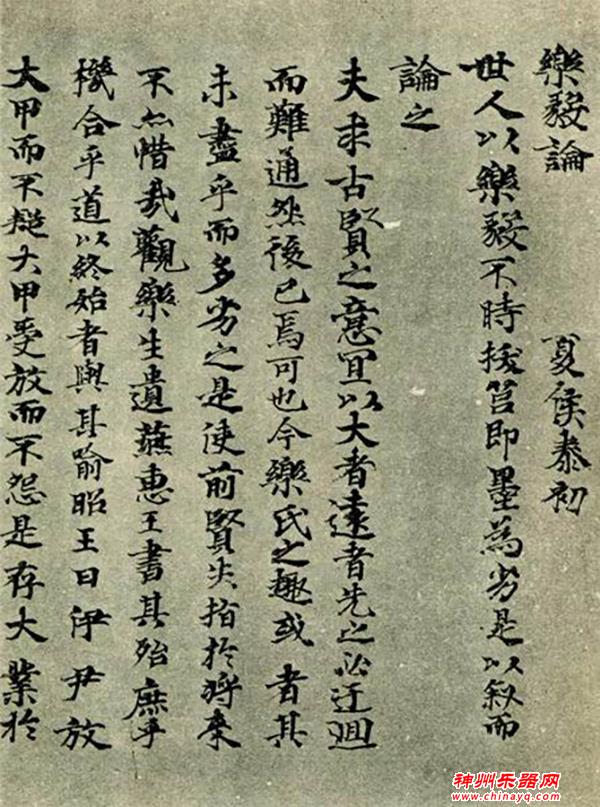 樂毅論 夏侯泰初
世人以樂毅不時拔莒即墨為劣是以叙而
論之
夫求古賢之意宜以大者遠者先之必迂迴
而難通然後已焉可也今樂氏之趣或者其
未盡乎而多劣之是使前賢失指於將來
不亦惜哉觀樂生遺燕惠王書其殆庶乎
機合乎道以終始者與其喻昭王曰伊尹放
大甲而不疑大甲受放而不怨是存大業於
神州乐器网
www.chinayq.com